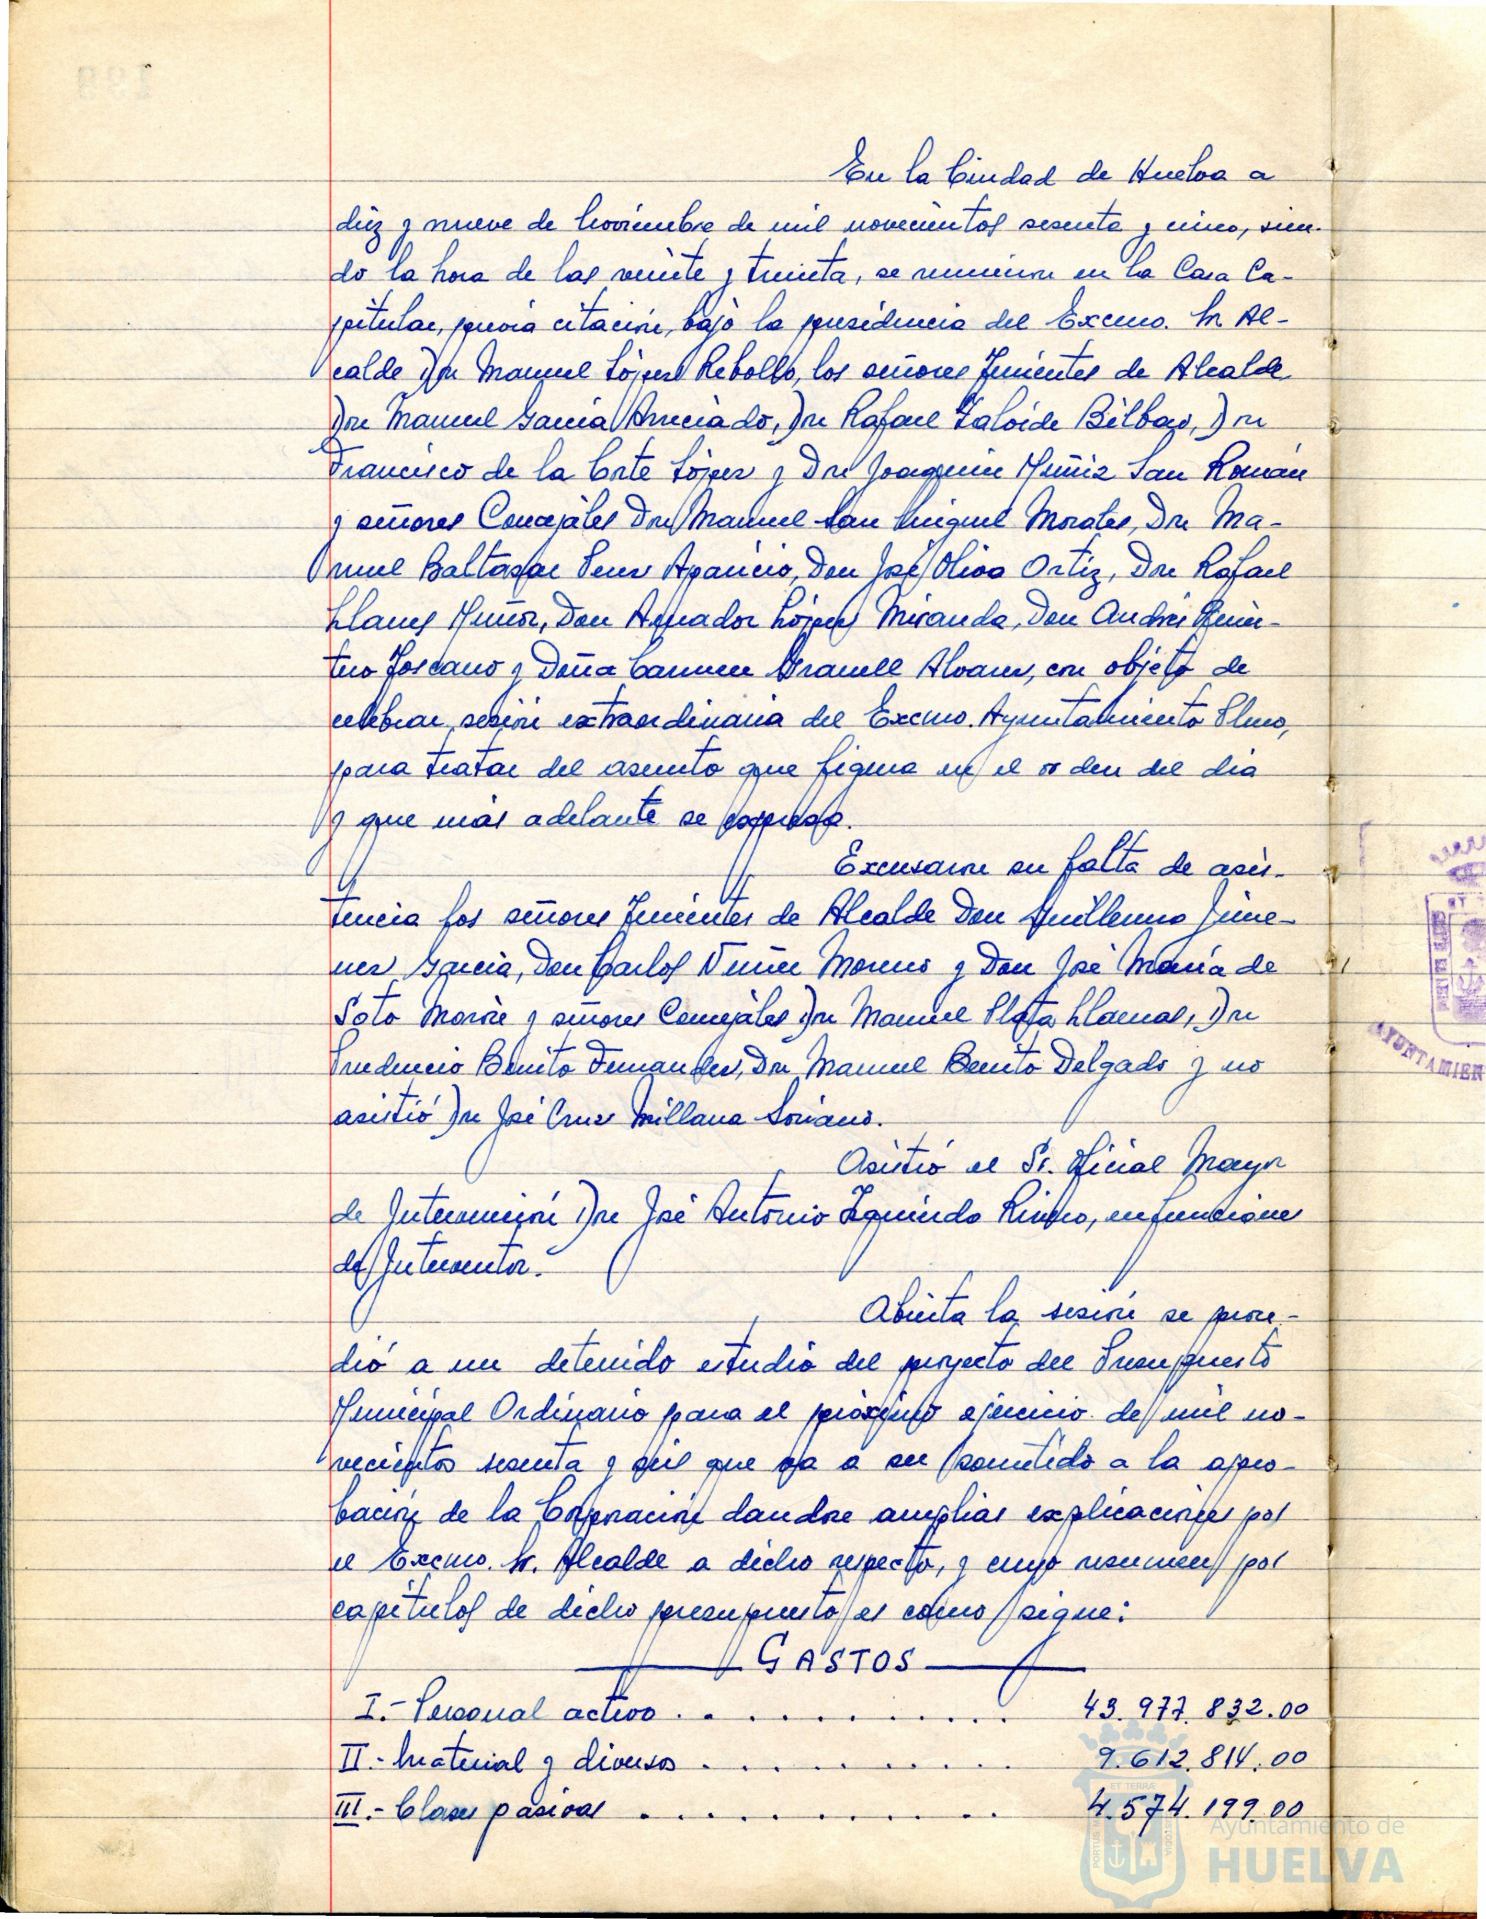 En la Ciudad de Huelva a
diez y nueve de Noviembre de mil novecientos sesenta y cinco, sien-
do la hora de las veinte y treinta, se reunieron en la Casa Ca-
pitular, previa citación, bajo la presidencia del Excmo. Sr Al-
calde Don Manuel López Rebollo, los señores Tenientes de Alcalde
Don Manuel García Arreciado, Don Rafael Zaloide Bilbao, Don
Francisco de la Corte López y Don Joaquín Muñiz San Román
y señores Concejales Don Manuel San Miguel Morales, Don Ma-
nuel Baltasar Pena Aparicio, Don José Oliva Ortiz, Don Rafael
Llanes Muñoz, Don Amador López Miranda, Don Andrés Quin-
tero Toscano y Doña Carmen Granell Alvarez, con objeto de
celebrar sesión extraordinaria del Excmo. Ayuntamiento Pleno,
para tratar del asunto que figura en el orden del día
y que más adelante se expresa.
Excusaron su falta de asis-
tencia los señores Tenientes de Alcalde Don Guillermo Jime-
nez García, Don Carlos Nuñez Moreno y Don José María de
Soto Morón y señores Concejales Don Manuel Plata Llamas, Don
Prudencio Benito Fernandez, Don Manuel Benito Delgado y no
asistió Don José Cruz Millana Soriano.
Asistió el Sr. Oficial Mayor
de Intervención Don José Antonio Izquierdo en funciones
de Interventor.
Abierta la sesión se proce-
dió a un detenido estudio del proyecto del Presupuesto
Municipal Ordinario para el próximo ejercicio de mil no-
vecientos sesenta y seis que va a ser sometido a la apro-
bación de la Corporación dandose amplias explicaciones por
el Excmo. Sr. Alcalde a dicho respecto, y cuyo resumen por
capítulos de dicho presupuesto es como sigue:
GASTOS
I.- Personal activo . . . . . . . . . . . 43.977.832.00
II.- Material y diversos . . . . . . . . . . 9.612.814.00
III.- Clases pasivas . . . . . . . . . . . . 4.574.199.00
AYUNTAMIEN
Ayuntamiento de
HUELVA